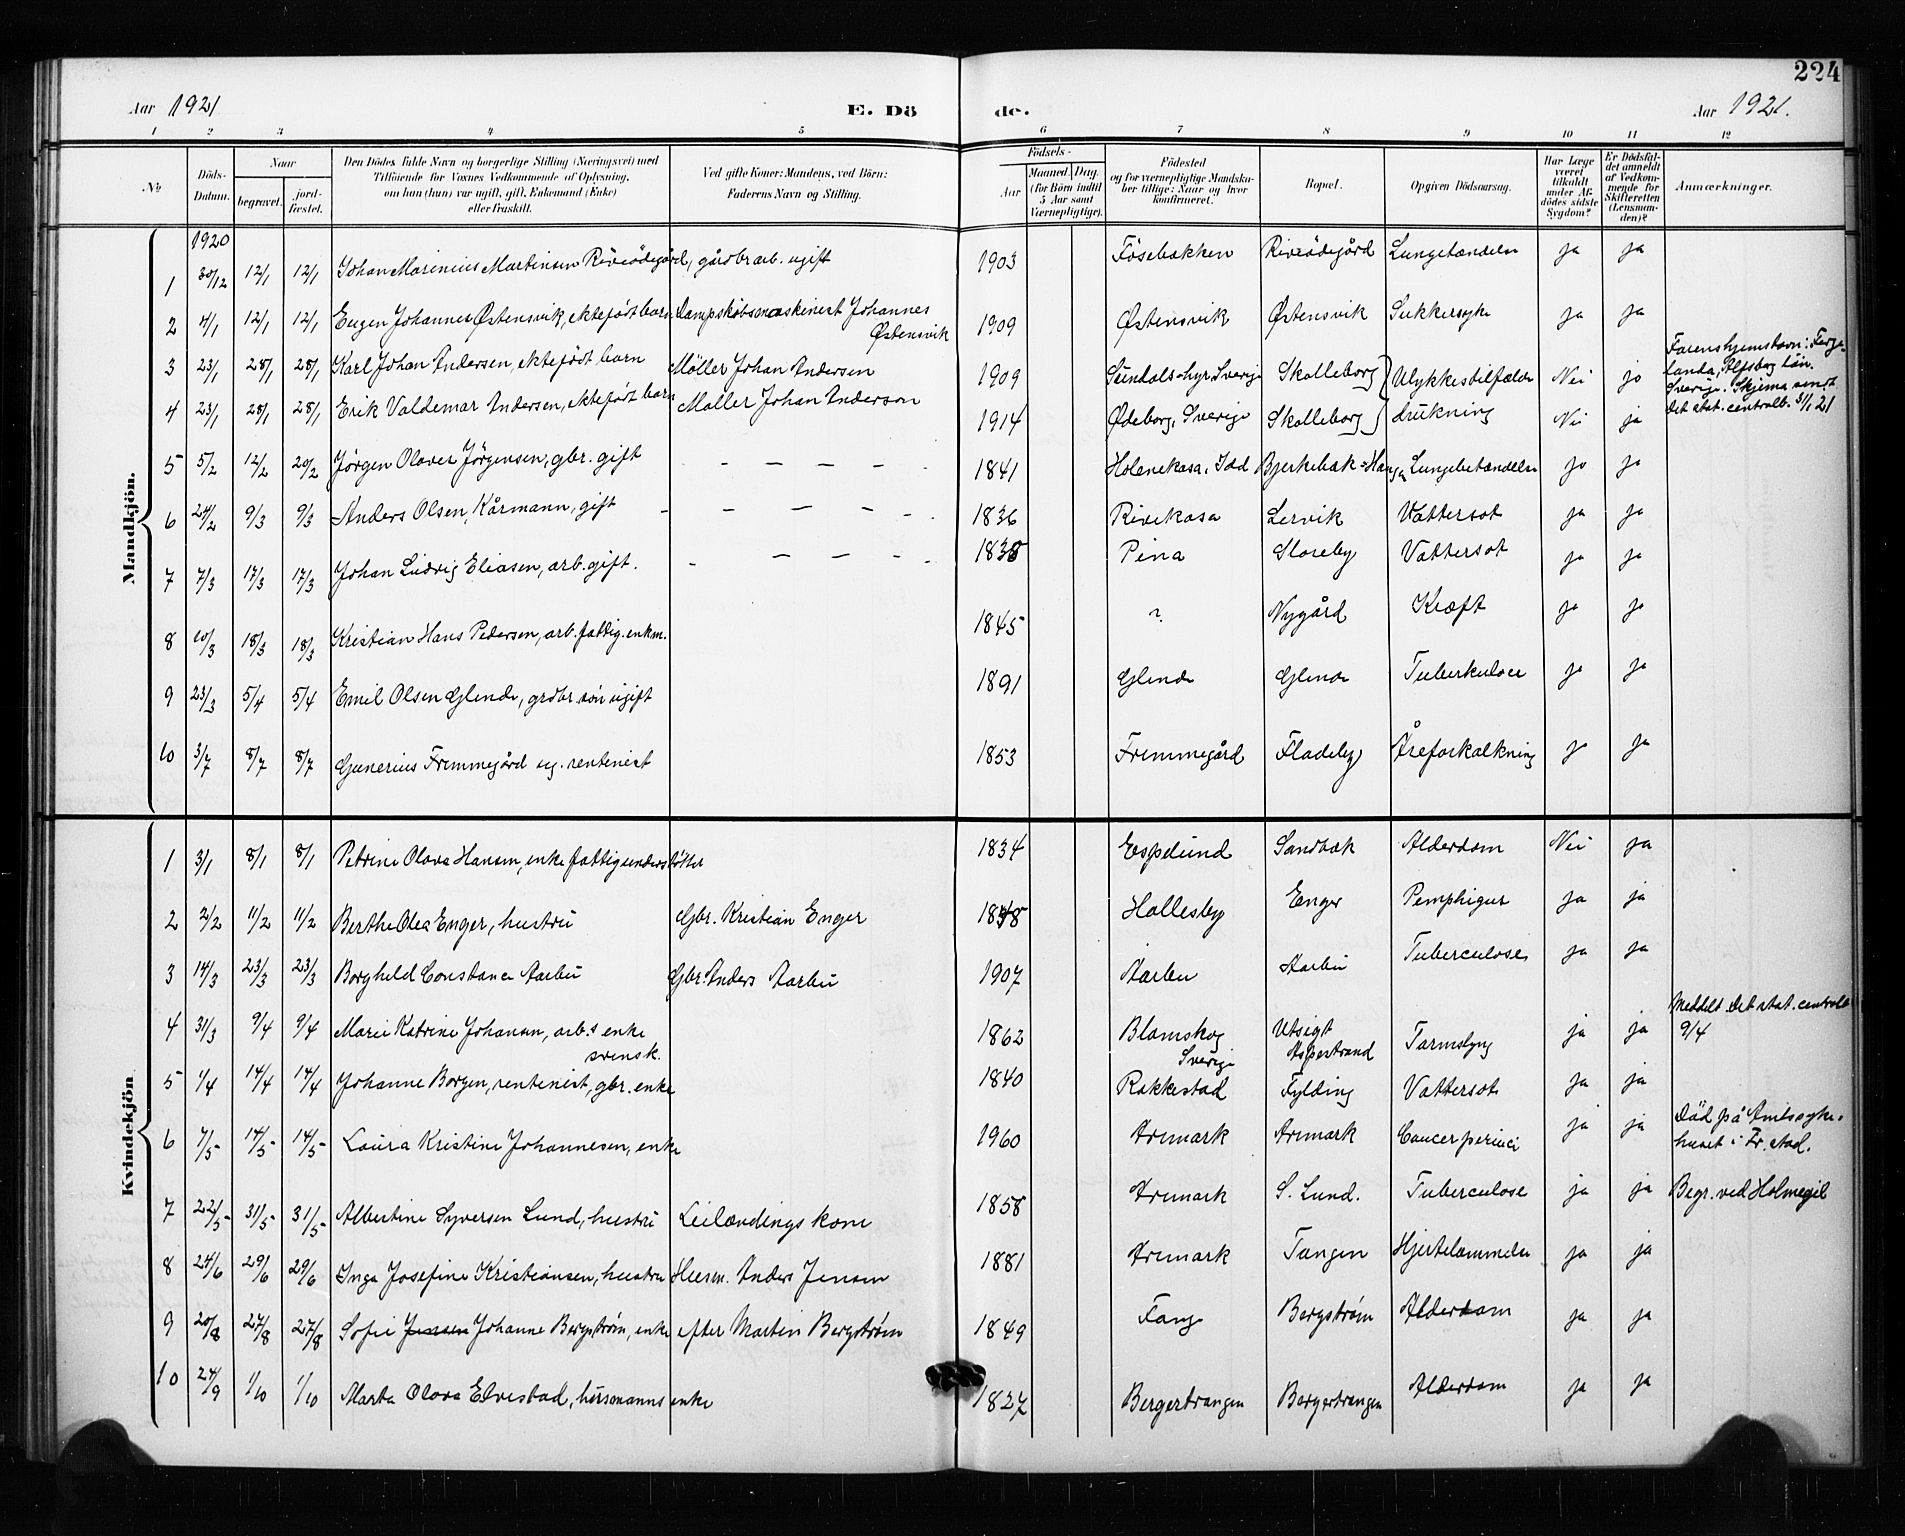 224
Aar 1921 E. Dö de. Aar 1921.
1 2 3 4 5 6 7 8 9 10 11 12
No. Döds-Datum. Naar begravet. jord-fæstet. Den Dödes fulde Navn og borgerlige Stilling (Næringsvei) med Tilföiende for Voxnes Vedkommende af Oplysning, om han (hun) var ugift, gift, Enkemand (Enke) eller fraskilt. Ved gifte Koner: Mandens, ved Börn: Faderens Navn og Stilling. Födsels- Aar Maaned. Dag. (for Börn indtil 5 Aar samt Værnepligtige). Födested og for værnepligtige Mandskaber tillige: Naar og hvor konfirmeret. Bopæl. Opgiven Dödsaarsag. Har Læge været tilkaldt under Afdödes sidste Sygdom? Er Dödsfaldet anmeldt af Vedkommende for Skifteretten (Lensmanden)? Anmærkninger.
Mandkjön.
1920
1 30/12 12/1 12/1 Johan Marinius Martinsen Riveödegård, gårdbrarb. ugift 1903 Fösebakken Riveödegård Lungebtændelse ja ja
2 4/1 12/1 12/1 Eugen Johannes Østensvik, ektefødt barn Dampskibsmaskinist Johannes Østensvik 1909 Østensvik Østensvik Sukkersyke ja ja
3 23/1 28/1 28/1 Karl Johan Andersen, ektefödt barn Möller Johan Andersen 1909 Sundals-hyr. Sverige Skolleborg Ulykkestilfælde Nei ja Farens hjemstavn: Færgelanda, Elfsborg län. Sverige. Skjema sendt det stat. centralb. 31/1 21
4 23/1 28/1 28/1 Erik Valdemar Andersen, ektefödt barn Møller Johan Anderson 1914 Ødeborg, Sverige Skolleborg drukning Nei ja
5 5/2 12/2 20/2 Jörgen Olaves Jörgensen, gbr. gift — — — — — 1841 Holenekasa, Idd Bjerkebæk-Hauga Lungebetændelse ja ja
6 24/2 9/3 9/3 Anders Olsen, Kårmann, gift — — — — 1836 Rivekasa Lervik Vattersot ja ja
7 7/3 17/3 17/3 Johan Ludvig Eliasen, arb. gift. — — — — 1838 Pina Storeby Vattersot ja ja
8 10/3 18/3 18/3 Kristian Hans Pedersen, arb. fattig. enkm. 1845 ? Nygård Kræft ja ja
9 23/3 5/4 5/4 Emil Olsen Glende, grdbr. sön ugift 1891 Glende Glende Tuberkulose ja ja
10 3/7 8/7 8/7 Gunerius Fremmegård ug. rentenist 1853 Fremmegård Fladeby Åreforkalkning ja ja
Kvindekjön
1 3/1 8/1 8/1 Petrine Olava Hansen, enke fattigunderstöttet 1834 Espelund Sandbæk Alderdom Nei ja
2 2/2 11/2 11/2 Berthe Olea Enger, hustru Gbr. Kristian Enger 1848 Hallesby Enger Pemphigus ja ja
3 14/3 23/3 23/3 Borghild Constance Aarbu Gbr. Anders Aarbu 1907 Aarbu Aarbu Tuberculose ja ja
4 31/3 9/4 9/4 Marie Katrine Johansen, arb.s enke svensk. 1862 Blomskog Sverige Utsigt Aspestrand Tarmslyng ja ja Meddelt det stat. centralb. 9/4
5 1/4 14/4 14/4 Johanne Borgen, rentenist, gbr. enke 1840 Rakkestad Fylding Vattersot ja ja
6 7/5 14/5 14/5 Laura Kristine Johannesen, enke 1960 Aremark Aremark Cancer perinei ja ja Död på Amtssykehuset i Fr.stad.
7 22/5 31/5 31/5 Albertine Syversen Lund, hustru Leilændings kone 1858 Aremark S. Lund. Tuberculose ja ja Begr. ved Holmegil
8 24/6 29/6 29/6 Inga Josefine Kristiansen, hustru Husm. Anders Jensen 1881 Aremark Tangen Hjertelammelse ja ja
9 20/8 27/8 27/8 Sofie Jensen Johanne Bergstrøm, enke efter Martin Bergstrøm 1849 Fange Bergstrøm Alderdom ja ja
10 24/9 1/10 1/10 Marta Olava Elvestad, husmanns enke 1827 Bergertrangen Bergertrangen Alderdom ja ja